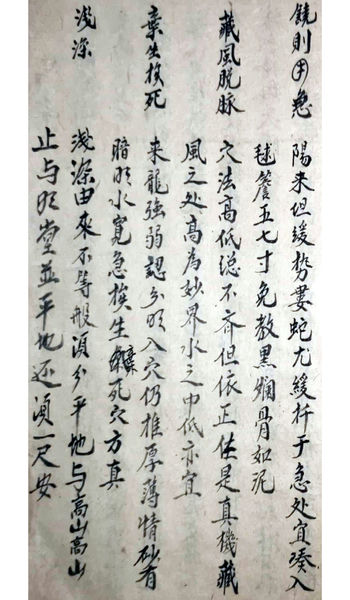 饒則用急　陽来但緩势萋蛇尤緩杆于急处宜凑入
毬簷五七寸免教黑爛骨如泥
藏風脱脉　穴法高低总不齐但依正仕是真機藏
風之处高為妙界水之中低亦宜
棄生挨死　来龍強弱認分明入穴仍推厚薄情砂有
暗明水寬急挨生棄死穴方真
浅深　浅深由來不等般須分平地与高山高山
止与明堂並平地还須一尺安